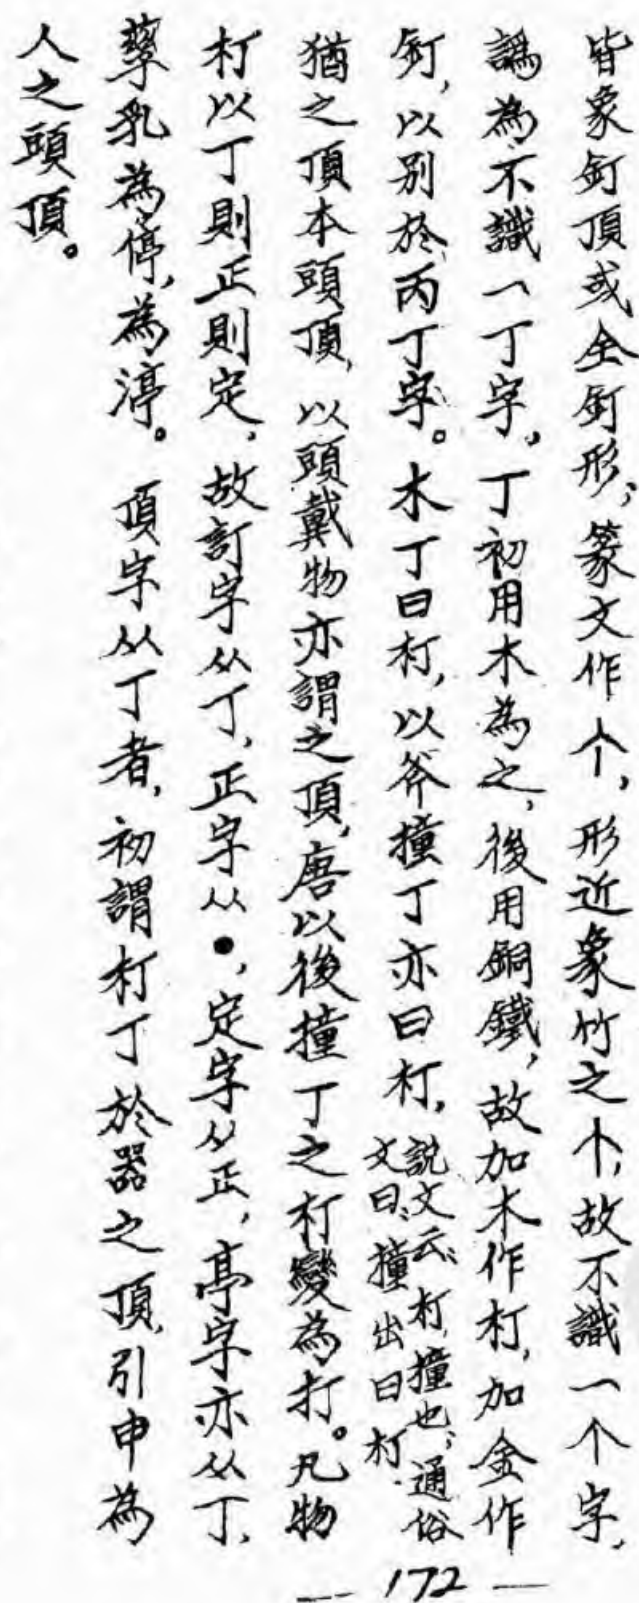 皆象釘頂或全釘形，篆文作个，形近象竹之个，故不識一个字，
譌為不識一丁字，丁初用木為之，後用銅鐵，故加木作朾，加金作
釘，以別於丙丁字。木丁曰朾，以斧撞丁亦曰朾，說文云：朾，撞也；通俗文曰：撞出曰朾。
猶之頂本頭頂，以頭戴物亦謂之頂，唐以後撞丁之朾變為打。凡物
朾以丁則正則定，故訂字从丁，正字从●，定字从正，亭字亦从丁，
孳乳為停，為渟。頂字从丁者，初謂朾丁於器之頂，引申為
人之頭頂。
— 172 —